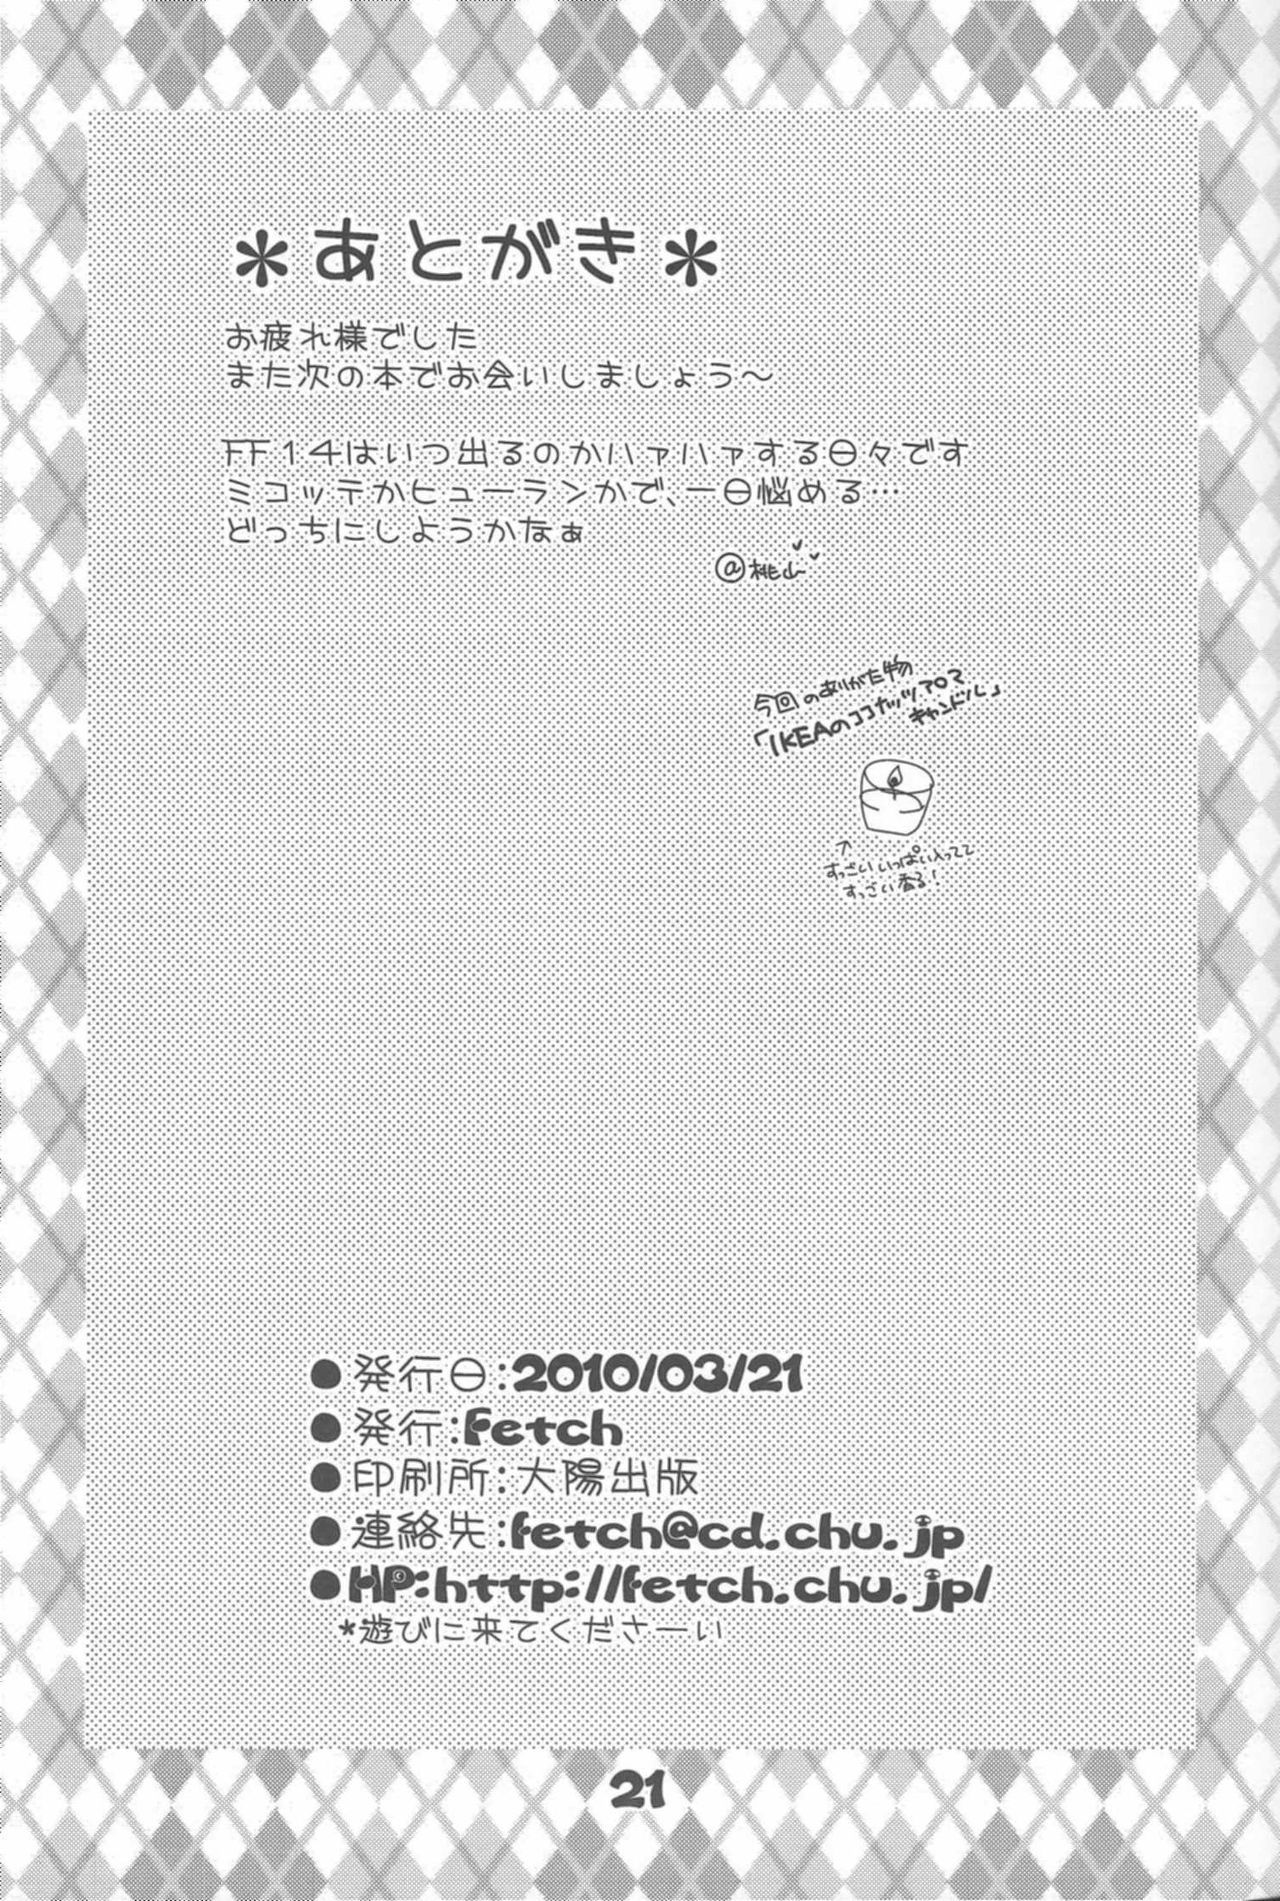 ＊あとがき＊
お疲れ様でした
また次の本でお会いしましょう〜
FF14はいつ出るのかハァハァする日々です
ミコッテかヒューランかで、一日悩める…
どっちにしようかなぁ
@桃山
今回のありがた物
「IKEAのココナッツアロマ
キャンドル」
↑
すっごいいっぱい入ってて
すっごい香る！
●発行日:2010/03/21
●発行:Fetch
●印刷所:大陽出版
●連絡先:fetch@cd.chu.jp
●HP:http://fetch.chu.jp/
*遊びに来てくださーい
21